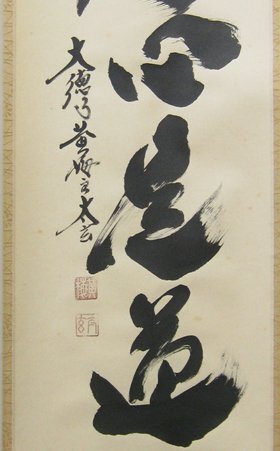 心是道
大徳寺黄梅太玄